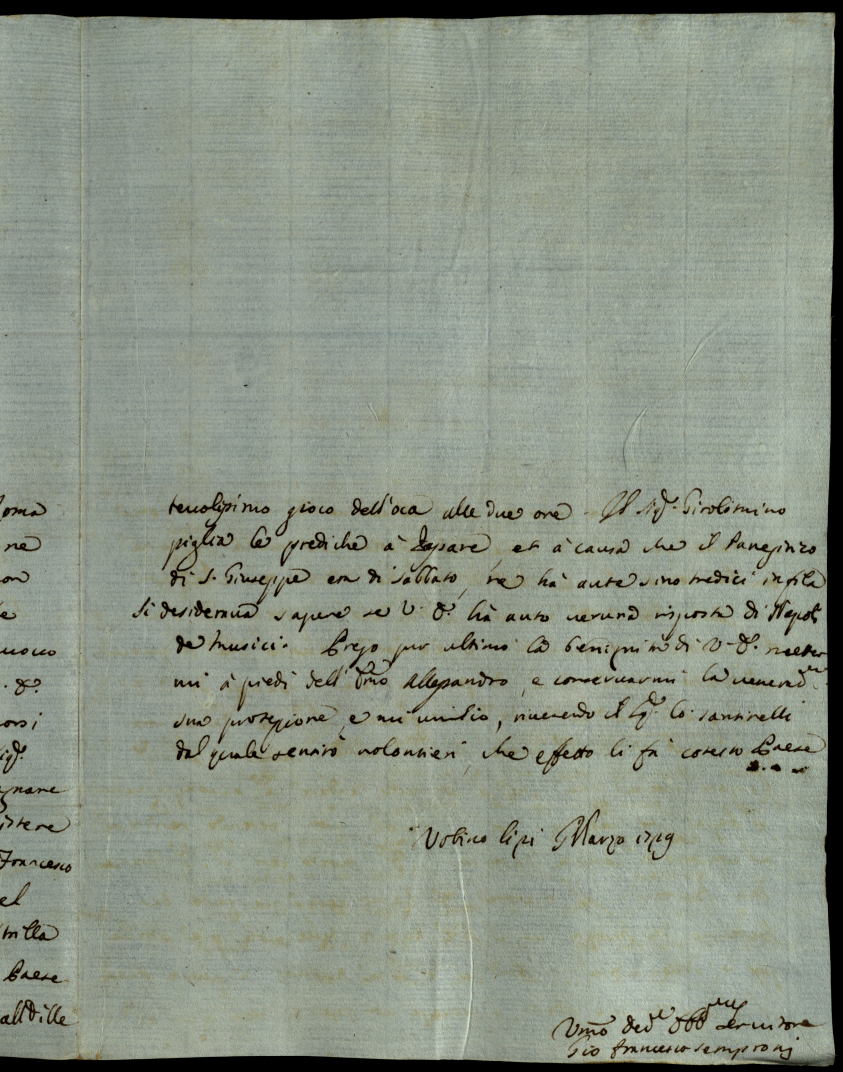 oma
ne
on
e
uoco
. &.
orsi
sig.r
gnare
istere
Francesco
el
milla
Paese
all'Ville
teuolissimo gioco dell'oca alle due ore. Il Sig.r Girolimino
piglia le prediche à et à causa che il Panegirico
di S. Giuseppe era di sabbato, ne hà aute sino tredici in fila
Si desideraua sapere se V. E. hà auto ueruna risposta di Napoli
de Musici. Prego per ultimo la benignità di V. E. metter
mi à piedi dell' Em̃o Alessandro, e conseruarmi la
sua protezione, e mi umilio, riuerendo il Sig.r Co. Santinelli
dal quale sentirò uolontieri, che effetto li fà cotesto Paese
Vrbino li Marzo 1719
Vmo Deu.e Obb.mo Seruitore
Gio Francesco Semproni